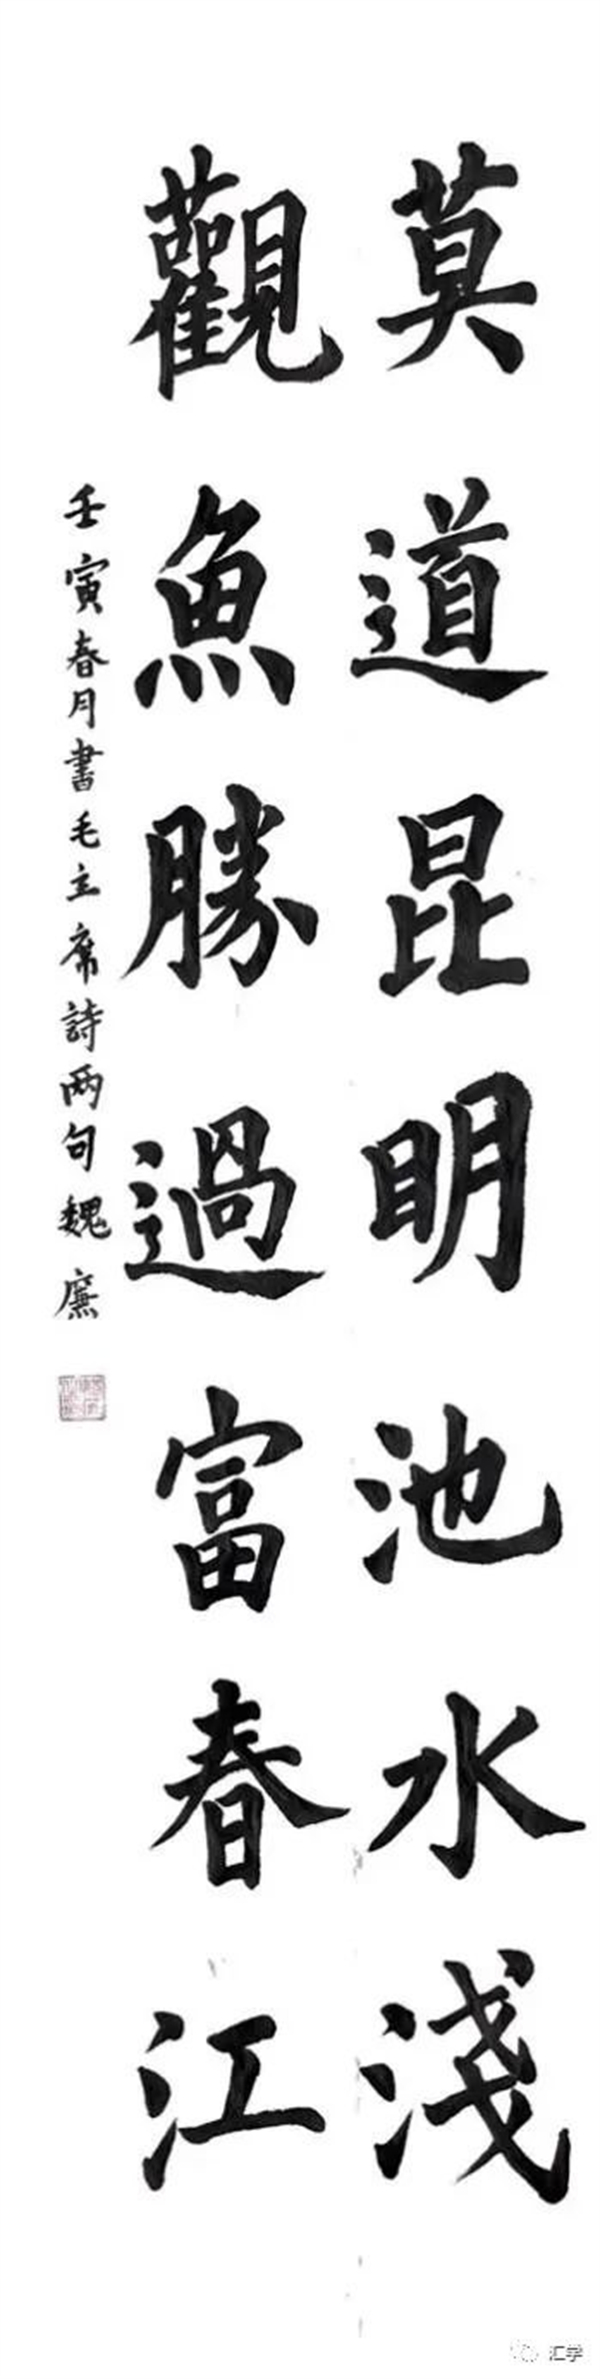 莫道昆明池水淺
觀魚勝過富春江
壬寅春月書毛主席詩兩句魏廉
汇学